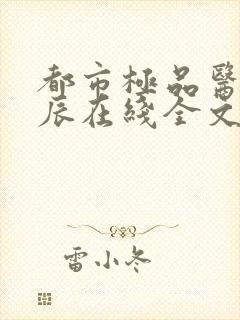 都市極品醫
辰在綫全文
雷小冬